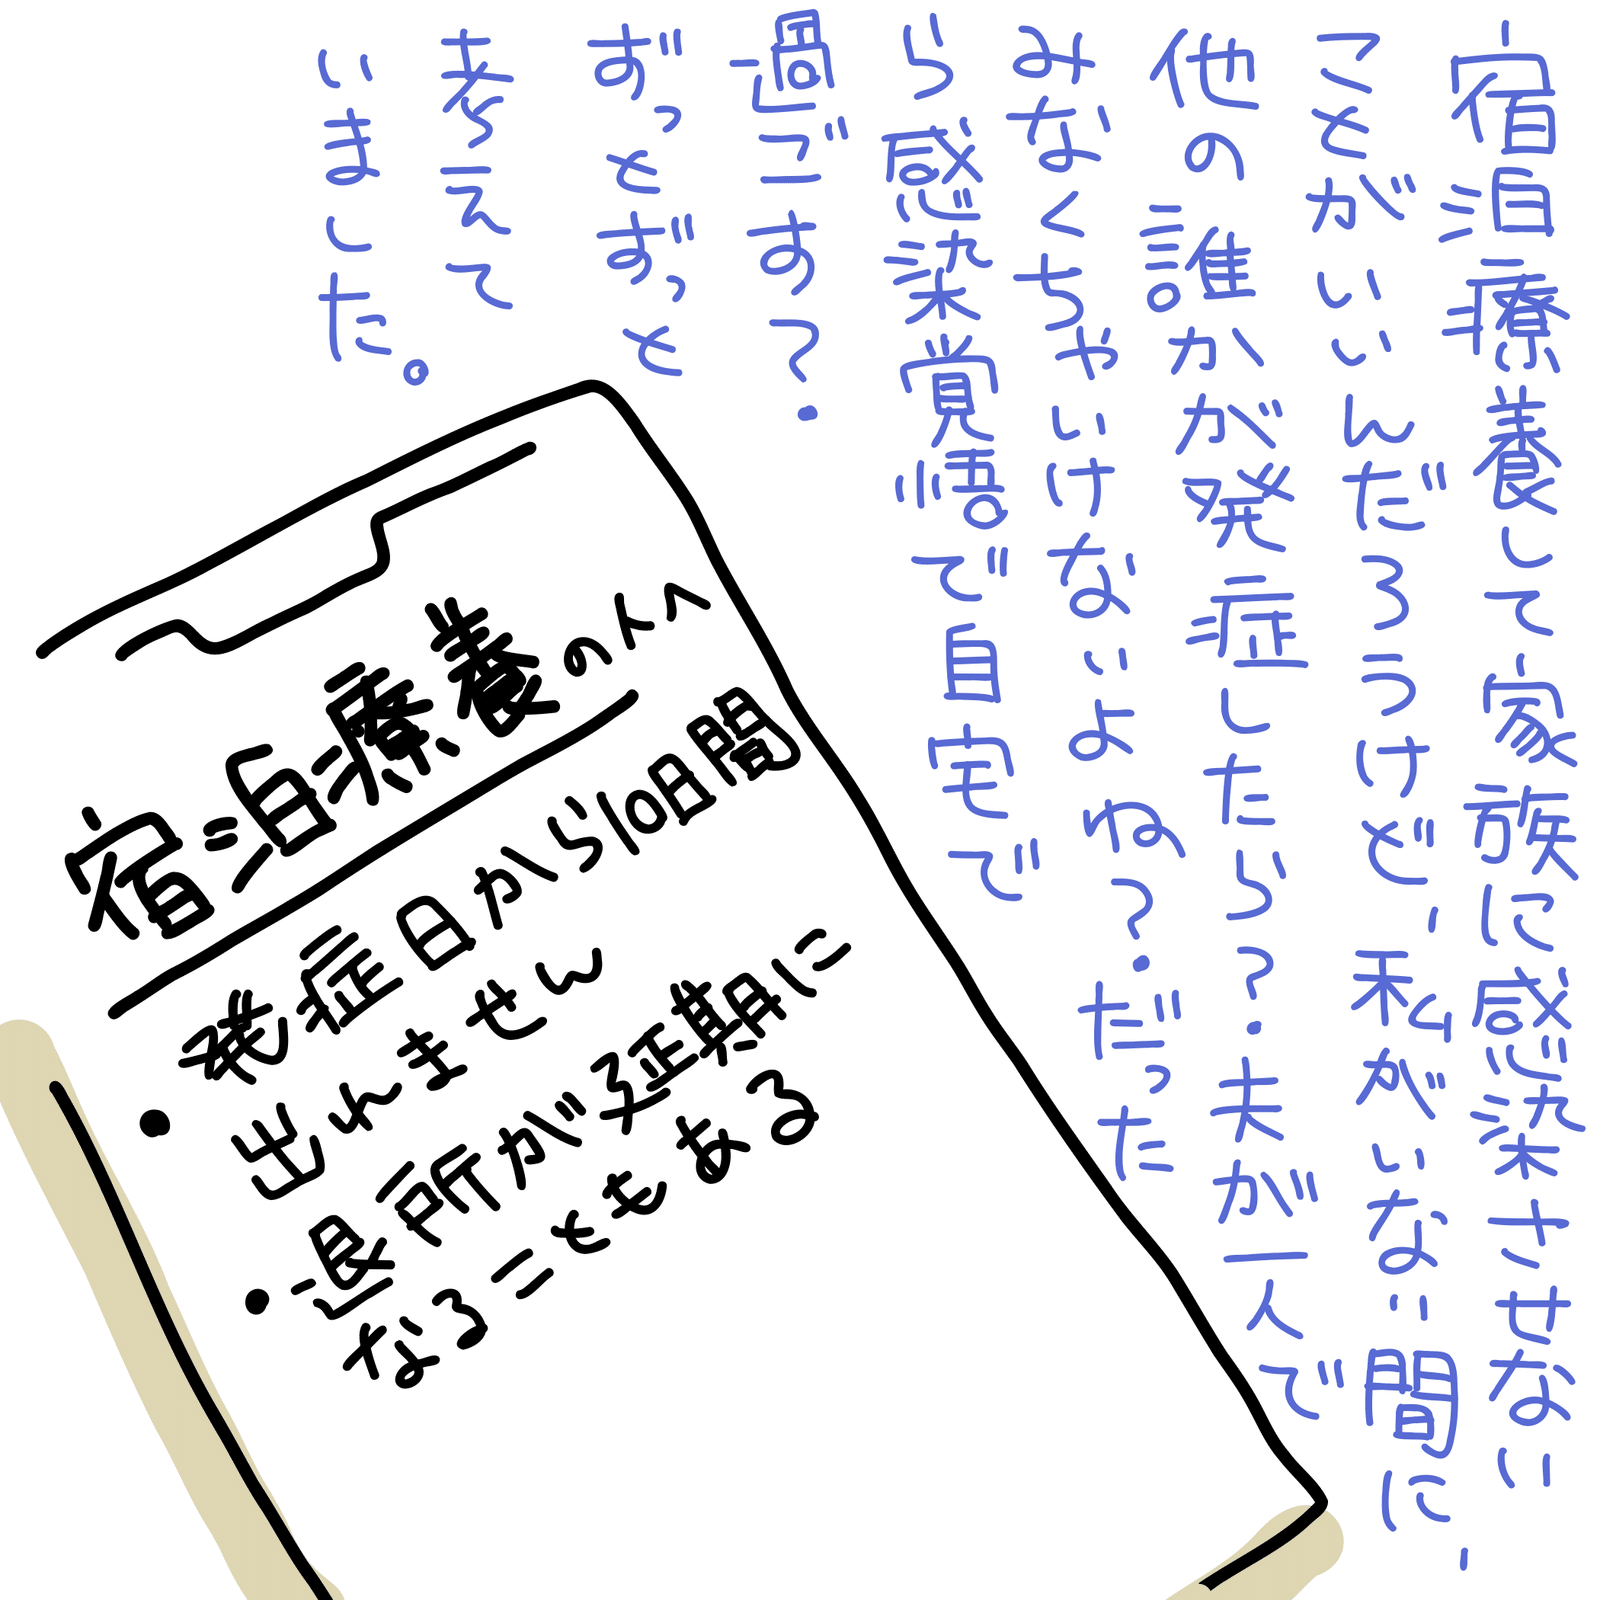 宿泊療養して家族に感染させない
ことがいいんだろうけど、私がいない間に、
他の誰かが発症したら?夫が一人で
みなくちゃいけないよね?だった
ら感染覚悟で自宅で
過ごす?
ずっとずっと
考えて
いました。
宿泊療養の人へ
・発症日から10日間
出れません
・退所が延期に
なることもある